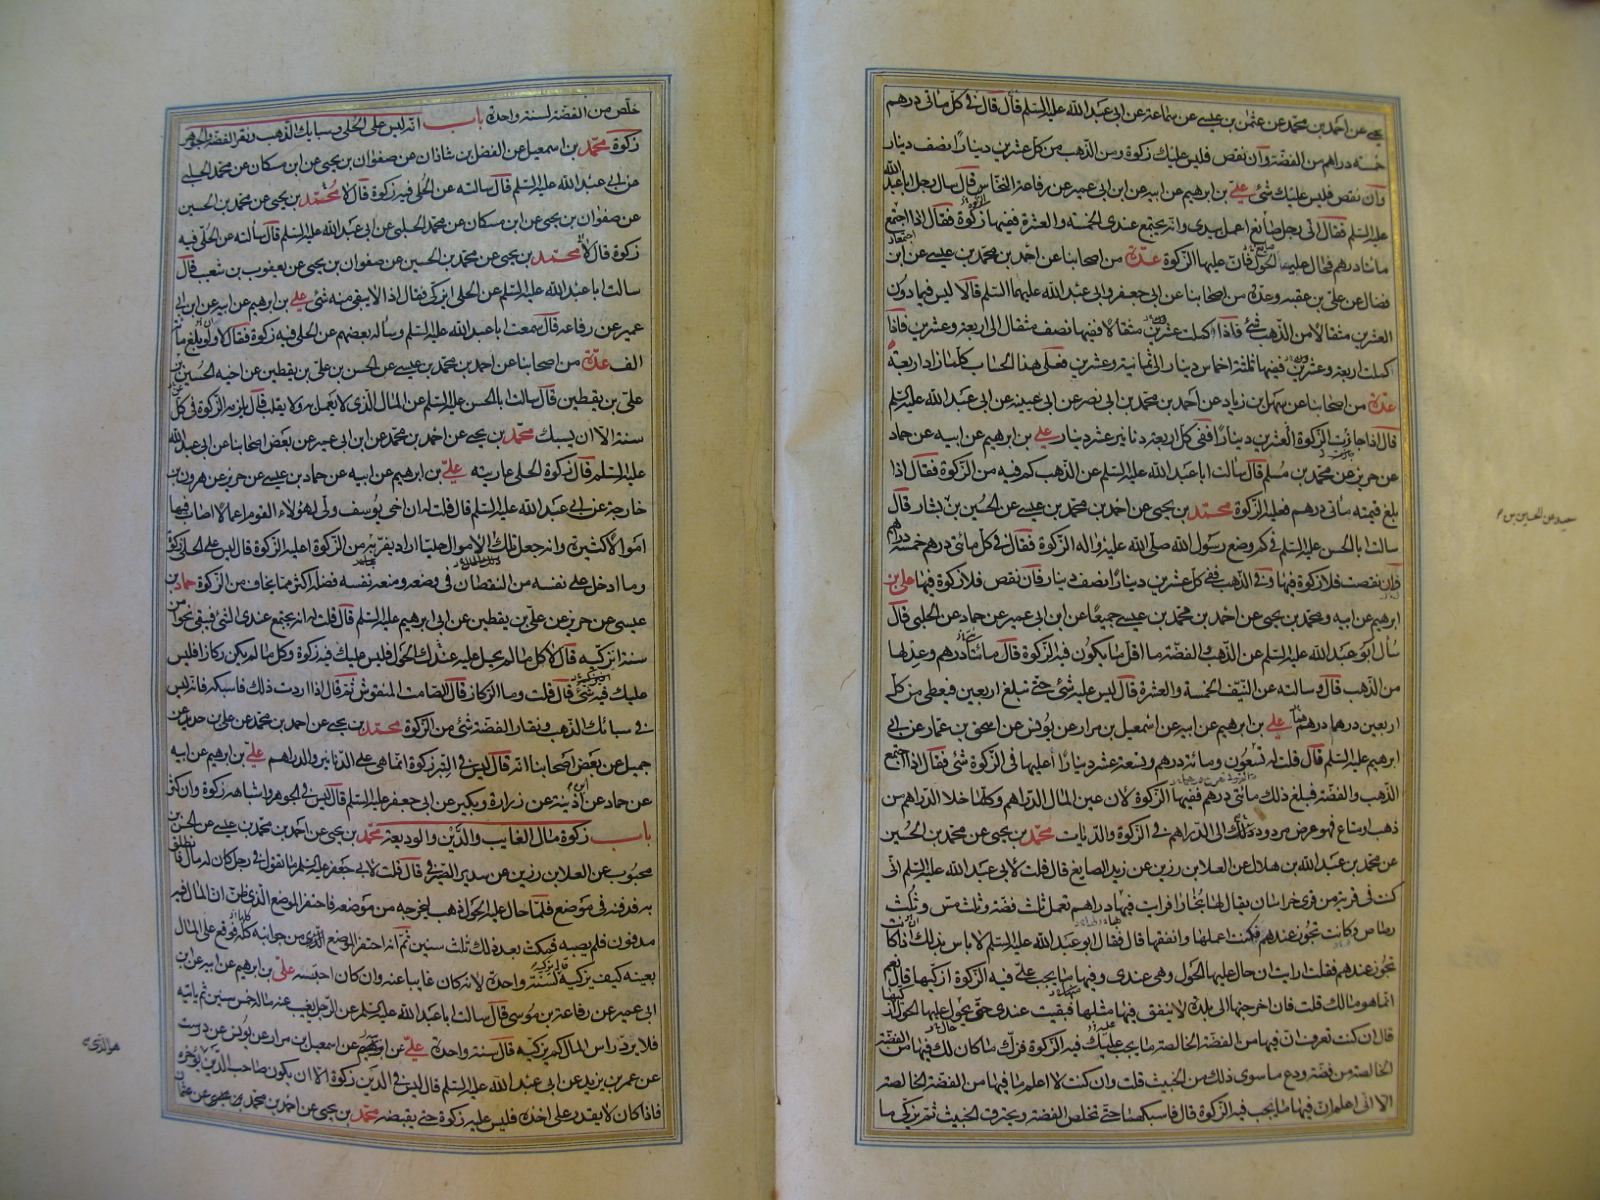 يحيى عن احمد بن محمد عن عثمن بن عيسى عن سماعة عن ابى عبد الله عليه السلم قال قال فى كل مأتى درهم
خمسة دراهم من الفضة وان نقص فليس عليك زكوة ومن الذهب من كل عشرين دينارًا نصف دينار
وان نقص فليس عليك شئ على بن ابرهيم عن ابيه عن ابن ابى عمير عن رفاعة النخاس قال سال رجل ابا عبد الله
عليه السلم فقال انى رجل صايغ اعمل بيدى وانه يجتمع عندى الخمسة والعشرة ففيها زكوة فقال اذا اجتمع
مائتا درهم فحال عليها الحول فان عليها الزكوة عدة من اصحابنا عن احمد بن محمد بن عيسى عن ابن
فضال عن على بن عقبه وعدة من اصحابنا عن ابى جعفر وابى عبد الله عليهما السلم قالا ليس فيما دون
العشرين مثقالا من الذهب شئ فاذا كملت عشرين مثقالًا ففيها نصف مثقال الى اربعة وعشرين فاذا
كملت اربعة وعشرين ففيها ثلثة اخماس دينار الى ثمانية وعشرين فعلى هذا الحساب كلما زاد اربعة
عدة من اصحابنا عن سهل بن زياد عن احمد بن محمد بن ابى نصر عن ابى عيينه عن ابى عبد الله عليه السلم
قال اذا جازت الزكوة العشرين دينارًا ففى كل اربعة دنانير عشر دينار على بن ابرهيم عن ابيه عن حماد
عن حريز عن محمد بن مسلم قال سالت ابا عبد الله عليه السلم عن الذهب كم فيه من الزكوة فقال اذا
بلغ قيمته مأتى درهم فعليه الزكوة محمد بن يحيى عن احمد بن محمد بن عيسى عن الحسين بن بشار قال
سالت ابا الحسن عليه السلم فى كم وضع رسول الله صلى الله عليه واله الزكوة فقال فى كل مائتى درهم خمسة دراهم
فان نقصت فلا زكوة فيها وفى الذهب ففى كل عشرين دينارًا نصف دينار فان نقص فلا زكوة فيها على بن
ابرهيم عن ابيه ومحمد بن يحيى عن احمد بن محمد بن عيسى جميعًا عن ابن ابى عمير عن حماد عن الحلبى قال
سأل ابو عبد الله عليه السلم عن الذهب والفضة ما اقل ما يكون فيه الزكوة قال مائتا درهم وعدلها
من الذهب قال وسالته عن النيف الخمسة والعشرة قال ليس عليه شئ حتى تبلغ اربعين فيعطى من كل
اربعين درهما درهم على بن ابرهيم عن ابيه عن اسمعيل بن مرار عن يونس عن اسحق بن عمار عن ابى
ابرهيم عليه السلم قال قلت له تسعون ومائة درهم وتسعة عشر دينارًا أعليها فى الزكوة شئ فقال اذا اجتمع
الذهب والفضة فبلغ ذلك مائتى درهم ففيها الزكوة لان عين المال الدراهم وكلما خلا الدراهم من
ذهب او متاع فهو عرض مردود ذلك الى الدراهم فى الزكوة والديات محمد بن يحيى عن محمد بن الحسين
عن محمد بن عبد الله بن هلال عن العلا بن رزين عن زيد الصايغ قال قلت لابى عبد الله عليه السلم انى
كنت فى قرية من قرى خراسان يقال لها بخارا فرايت فيها دراهم تعمل ثلث فضة وثلث مس وثلث
رصاص وكانت تجوز عندهم فكنت اعملها وانفقها قال فقال ابو عبد الله عليه السلم لا باس بذلك اذا كان
تجوز عندهم فقلت ارايت ان حال عليها الحول وهى عندى وفيها ما يجب على فيه الزكوة ازكيها قال نعم
انما هو مالك قلت فان اخرجتها الى بلدة لا ينفق فيها مثلها فبقيت عندى حتى يحول عليها الحول ازكيها
قال ان كنت تعرف ان فيها من الفضة الخالصة ما يجب عليك فيه الزكوة فزك ما كان لك فيها من الفضة
الخالصة من فضة ودع ما سوى ذلك من الخبيث قلت وان كنت لا اعلم ما فيها من الفضة الخالصة
الا انى اعلم ان فيها ما يجب فيه الزكوة قال فاسبكها حتى تخلص الفضة ويحترق الخبيث ثم يزكى ما
خلص من الفضة لسنة واحدة باب انه ليس على الحلى وسبايك الذهب ونقر الفضة والجوهر
زكوة محمد بن اسمعيل عن الفضل بن شاذان عن صفوان بن يحيى عن ابن مسكان عن محمد الحلبى
عن ابى عبد الله عليه السلم قال سالته عن الحلى فيه زكوة قال لا محمد بن يحيى عن محمد بن الحسين
عن صفوان بن يحيى عن ابن مسكان عن محمد الحلبى عن ابى عبد الله عليه السلم قال سألته عن الحلى فيه
زكوة قال لا محمد بن يحيى عن محمد بن الحسين عن صفوان بن يحيى عن يعقوب بن شعيب قال
سالت ابا عبد الله عليه السلم عن الحلى ايزكى فقال اذا لا يبقى منه شئ على بن ابرهيم عن ابيه عن ابن ابى
عمير عن رفاعة قال سمعت ابا عبد الله عليه السلم وساله بعضهم عن الحلى فيه زكوة فقال لا ولو بلغ مائة
الف عدة من اصحابنا عن احمد بن محمد بن عيسى عن الحسن بن على بن يقطين عن اخيه الحسين بن
على بن يقطين قال سالت ابا الحسن عليه السلم عن المال الذى لا يعمل به ولا يقلب قال يلزمه الزكوة فى كل
سنة الا ان يسبك محمد بن يحيى عن احمد بن محمد عن ابن ابى عمير عن بعض اصحابنا عن ابى عبد الله
عليه السلم قال زكوة الحلى عاريته على بن ابرهيم عن ابيه عن حماد بن عيسى عن حريز عن هرون بن
خارجة عن ابى عبد الله عليه السلم قال قلت له ان اخى يوسف ولى لهؤلاء القوم اعمالا اصاب فيها
اموالًا كثيرة وانه جعل تلك الاموال حليا اراد يفر به من الزكوة اعليه الزكوة قال ليس على الحلى زكوة
وما ادخل على نفسه من النقصان فى وضعه ومنعه نفسه فضله اكثر مما يخاف من الزكوة حماد بن
عيسى عن حريز عن على بن يقطين عن ابى ابرهيم عليه السلم قال قلت له انه يجتمع عندى الشئ فيبقى نحوا من
سنة انزكيه قال لا كل ما لم يحل عليه عندك الحول فليس عليك فيه زكوة وكل ما لم يكن ركازا فليس
عليك فيه شئ قال قلت وما الركاز قال الصامت المنقوش ثم قال اذا اردت ذلك فاسبكه فانه ليس
فى سبائك الذهب ونقار الفضة شئ من الزكوة محمد بن يحيى عن احمد بن محمد عن على بن حديد عن
جميل عن بعض اصحابنا انه قال ليس فى التبر زكوة انما هى على الدنانير والدراهم على بن ابرهيم عن ابيه
عن حماد عن ابن اذينة عن زرارة وبكير عن ابى جعفر عليه السلم قال ليس فى الجوهر واشباهه زكوة وان كثر
باب زكوة مال الغايب والدين والوديعة محمد بن يحيى عن احمد بن محمد بن عيسى عن الحسن بن
محبوب عن العلا بن رزين عن سدير الصيرفى قال قلت لابى جعفر عليه السلم ما تقول فى رجل كان له مال فانطلق
به فدفنه فى موضع فلما حال عليه الحول ذهب ليخرجه من موضعه فاحتفر الموضع الذى ظن ان المال فيه
مدفون فلم يصبه فمكث بعد ذلك ثلث سنين ثم انه احتفر الموضع الذى من جوانبه كله فوقع على المال
بعينه كيف يزكيه قال يزكيه لسنة واحدة لانه كان غايبا عنه وان كان احتبسه على بن ابرهيم عن ابيه عن ابن
ابى عمير عن رفاعة بن موسى قال سالت ابا عبد الله عليه السلم عن الرجل يغيب عنه ماله خمس سنين ثم ياتيه
فلا يرد راس المال كم يزكيه قال سنة واحدة على عن ابيه عن اسمعيل بن مرار عن يونس عن درست
عن عمر بن يزيد عن ابى عبد الله عليه السلم قال ليس فى الدين زكوة الا ان يكون صاحب الدين يؤخره
فاذا كان لا يقدر على اخذه فليس عليه زكوة حتى يقبضه محمد بن يحيى عن احمد بن محمد بن عيسى عن عثمان